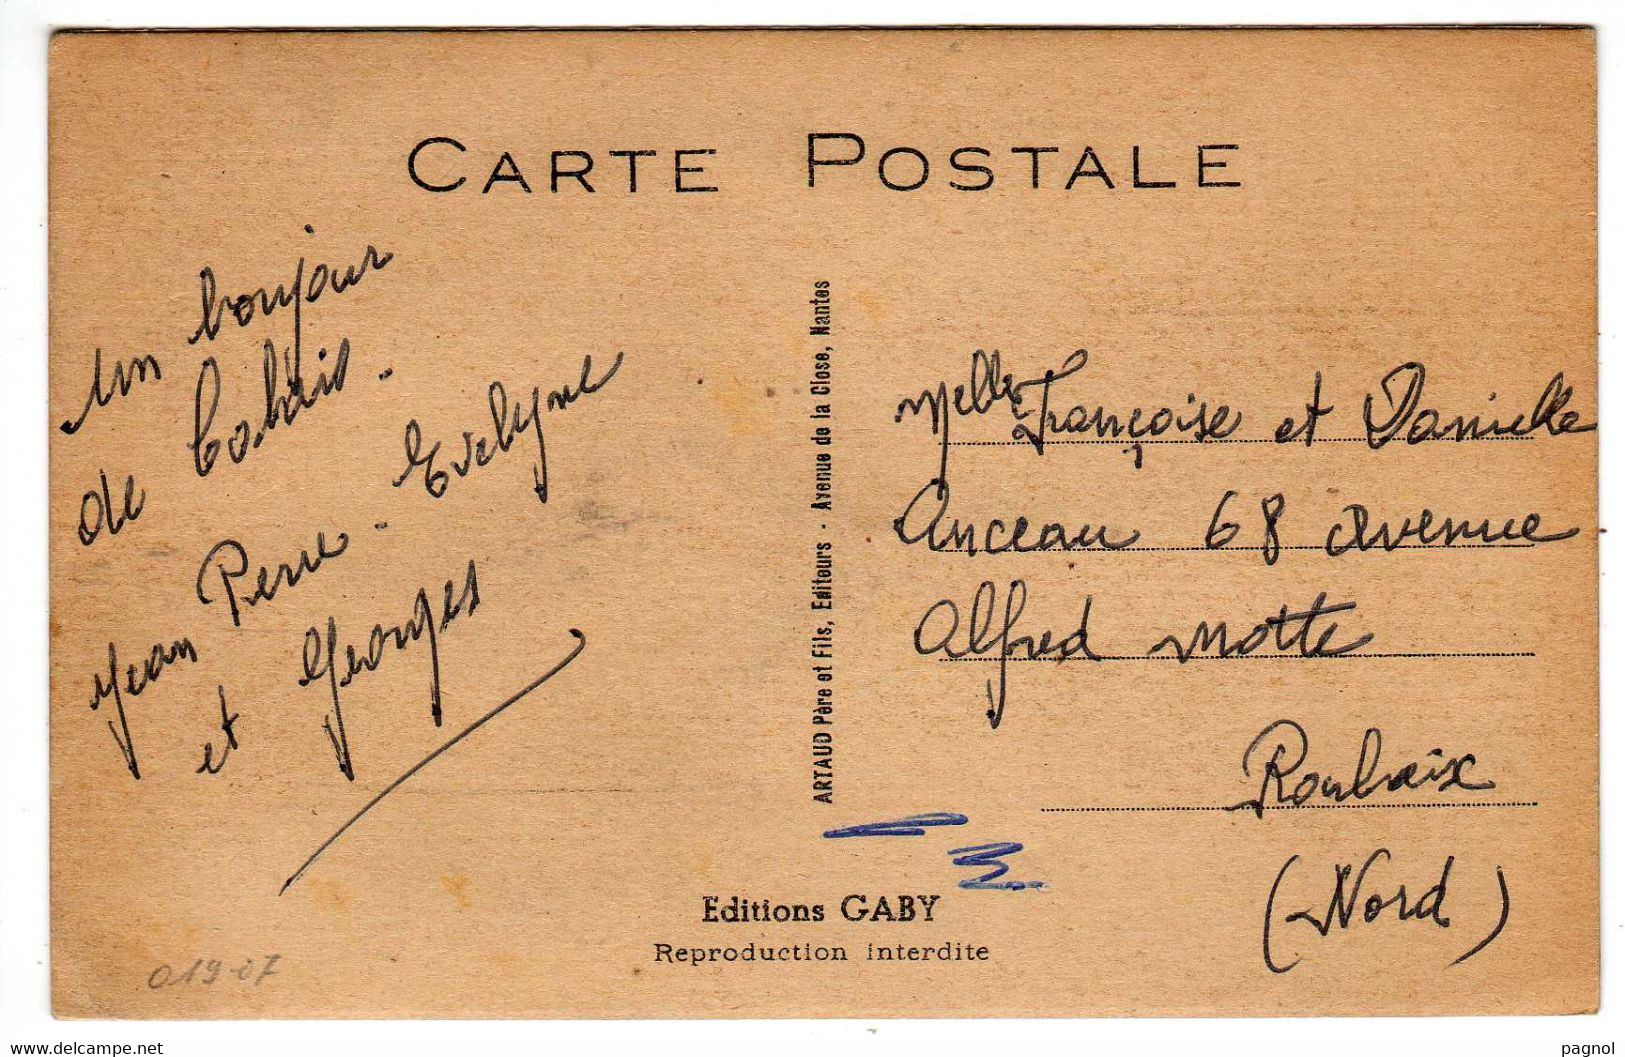 CARTE POSTALE
un bonjour
de
Jean Pierre - Evelyne
et Georges
ARTAUD Père et Fils, Editeurs - Avenue de la Close, Nantes
Melles Françoise et Danielle
Anceau 68 Avenue
Alfred Motte
Roubaix
(Nord)
Editions GABY
Reproduction interdite
019-07
www.delcampe.net
pagnol